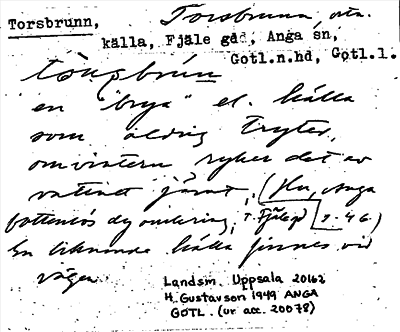 Torsbrunn, Torsbrunn, ortn.
källa, Fjäle gård, Anga sn,
Gotl.n.hd, Gotl.l.
en "brya" el. källa
som aldrig tryter,
om vintern ryker det av
vattnet jämt, (Hu, Anga
bottenlös dy omkring; T. Fjäle gd 9-46.)
En liknande källa finnes vid
vägen
Landsm. Uppsala 20162
H. Gustavson 1949 ANGA
GOTL. (ur acc. 20078)